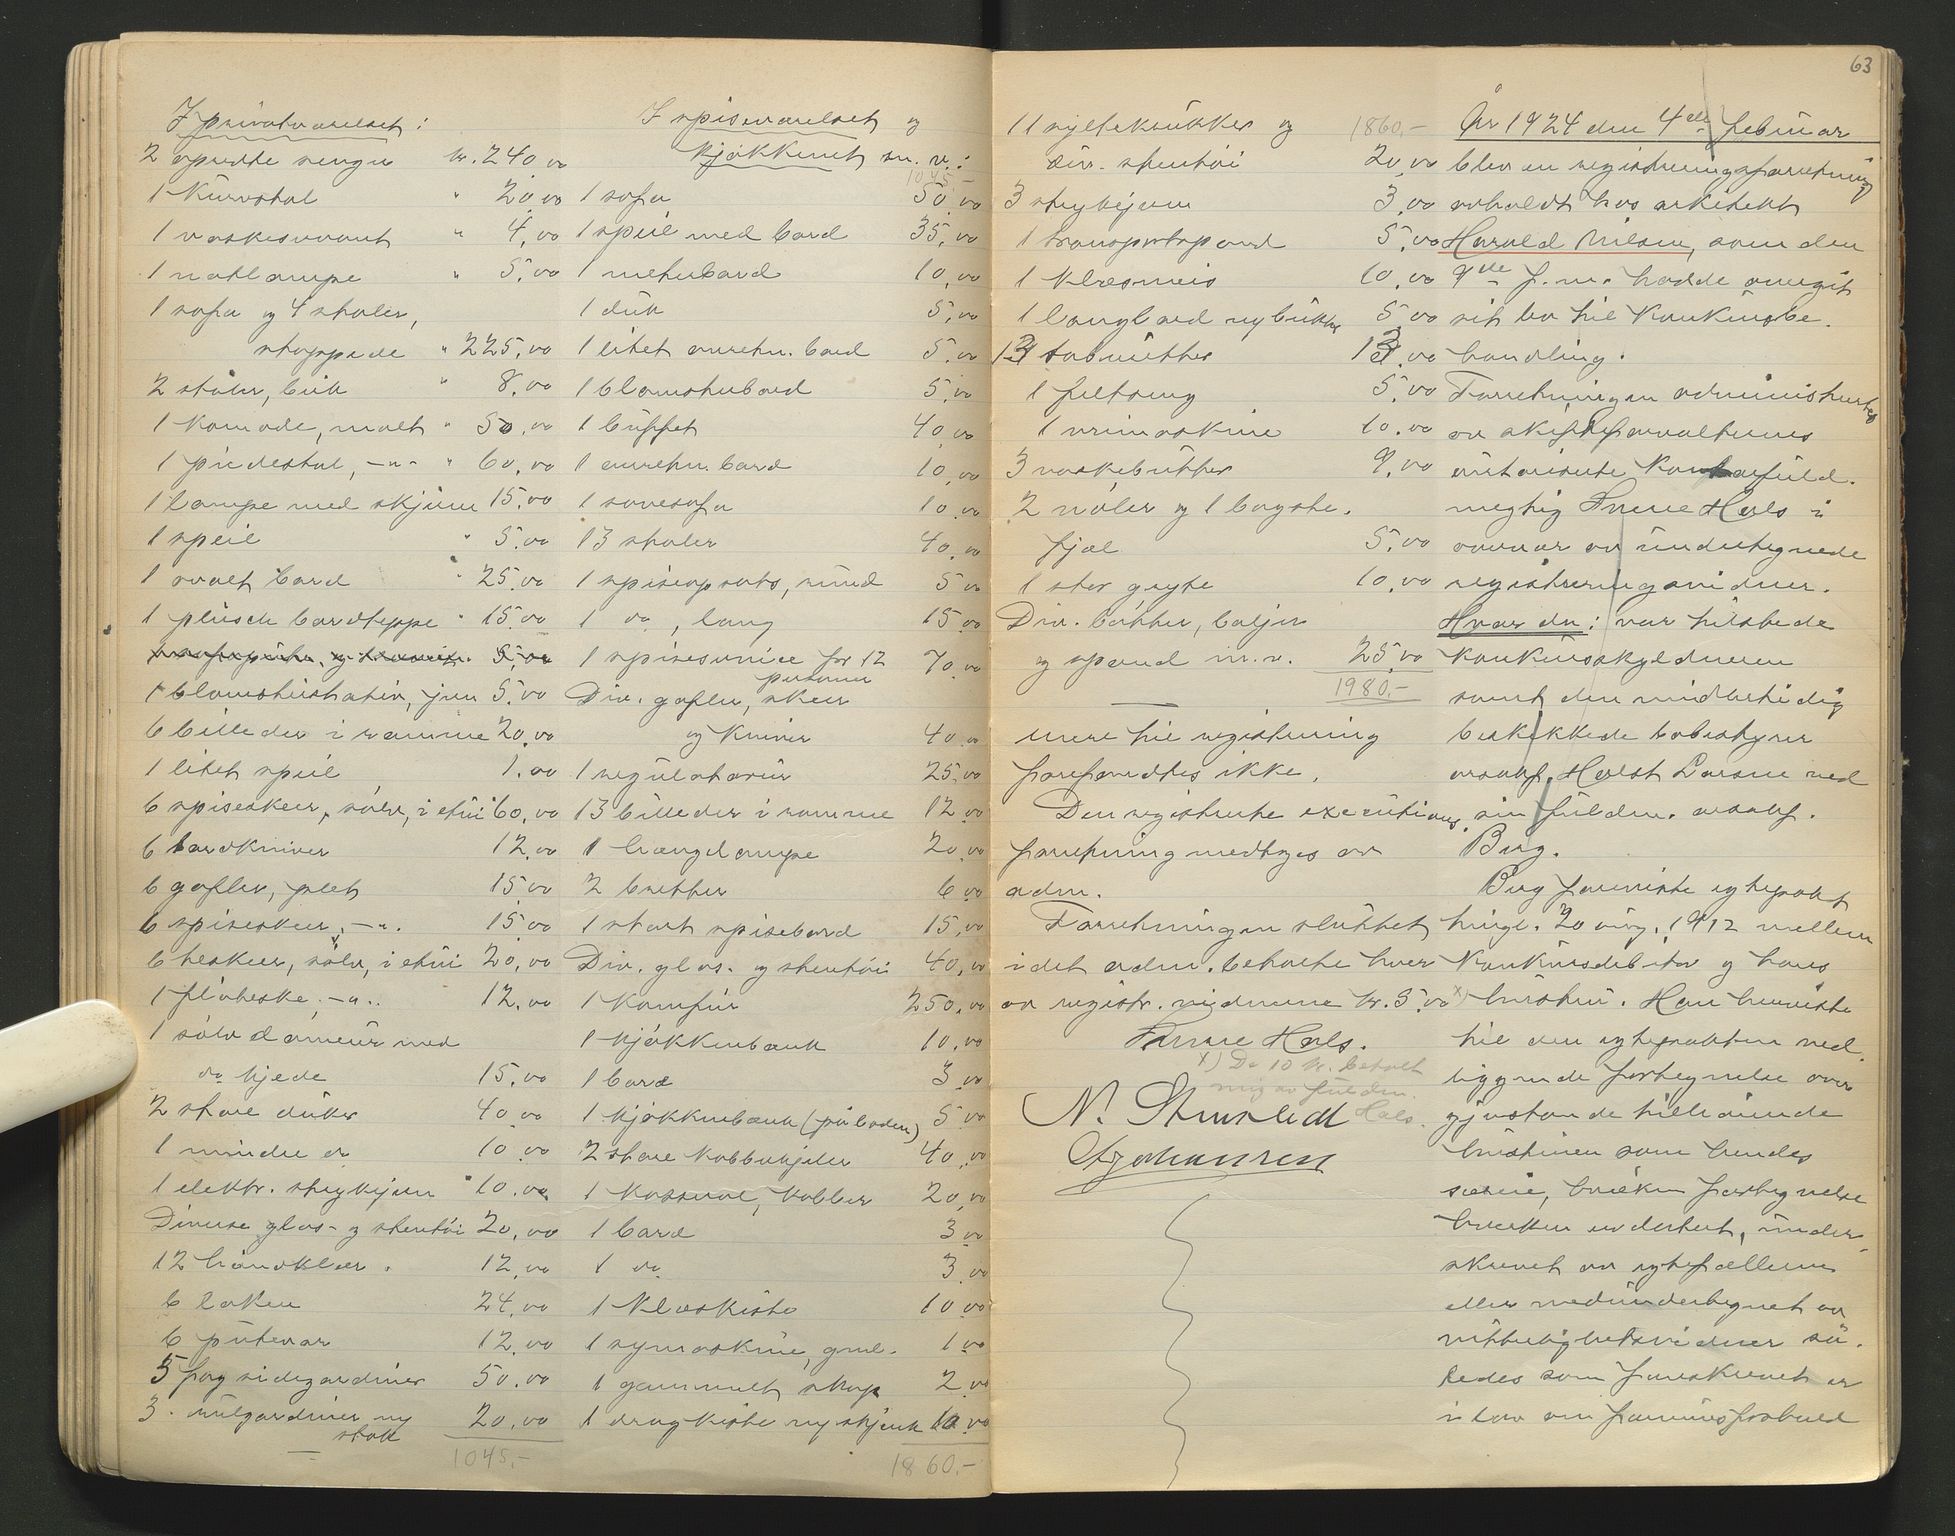 I privatværelset:
2 opredte senger kr. 240,00
1 Kurvstol " 20,00
1 vaskeservant " 4,00
1 natlampe " 5,00
1 sofa og 4 stoler,
stoppede " 225,00
2 stoler, bjerk " 8,00
1 Komode, malt " 50,00
1 piedestal, -"- " 60,00
1 lampe med skjerm 15,00
1 speil " 5.00
1 ovalt bord " 25,00
1 plusch bordteppe " 15,00
5,00
1 blomsterstativ, jern 5,00
6 billeder i ramme 20,00
1 litet speil 1.00
6 spiseskeer, sølv, i etui " 60,00
6 bordkniver 12,00
6 gafler, plet 15,00
6 spiseskeer, -"- 15,00
6 teskeer, sølv, i etui 20,00
1 fløteske, -"- 12,00
1 sølv dameur med
do kjede 15,00
2 store duker 40,00
1 mindre do 10,00
1 elektr. strykejern " 10,00
Diverse glas- og stentøi 20,00
12 håndklær. 12,00
6 laken 24,00
6 putevar 12,00
5 fag sidegardiner 50.00
3 rulgardiner og
stok 20,00
1045,-
I spiseværelset og
kjøkkenet m. v.:
1045,-
1 sofa 50,00
1 speil med bord 35,00
1 meterbord 10,00
1 duk 5,00
1 litet anretn. bord 5,00
1 blomsterbord 5,00
1 buffet 40,00
1 anretn. bord 10,00
1 sovesofa 10,00
13 stoler 40,00
1 spiseopsats, rund 5,00
1 do, lang 15,00
1 spiseservice for 12
personer 70,00
Div. gafler, skeer
og kniver 40,00
1 regulatorur 25,00
13 billeder i ramme 12,00
1 hængelampe 20,00
2 bretter 6,00
1 stort spisebord 15,00
Div. glas- og stentøi 40,00
1 Komfur 250,00
1 kjøkkenbænk 10,00
1 bord 3,00
1 kjøkkenbænk (på boden) 5,00
2 store kobberkjeler 40,00
1 Kasserol, kobber 20,00
1 bord 3,00
1 do 3,00
1 Klæskiste 10,00
1 symaskine, gml. 1,00
1 gammelt skap 2,00
1 dragkiste og skjenk 10,00
1860,-
63
11 syltekrukker og 1860,-
div. stentøi 20,00
3 strykejern 3,00
1 transportspand 5,00
1 Klæsmeis 10,00
1 langbord og bukker 5,00
13 tomutter 13,00
1 filtseng 5,00
1 vrimaskine 10.00
3 vaskebøtter 9,00
2 nøler og 1 bagste-
fjæl 5,00
1 stor gryte 10,00
Div. bøtter, baljer
og spand m.v. 25,00
1980,-
mere til registrering
forefandtes ikke.
Den registrerte executions-
forretning medtoges av
adm.
Forretningen sluttet
idet adm. betalte hver
av registr. vidnene kr. 5,00 x)
Finne Hals.
x) De 10 kr. betalt
mig av fuldm.
Hals.
N. Stenstedt
O Johansen
År 1924 den 4de februar
blev en registreringsforretning
avholdt hos arkitekt
Harald Nilsen, som den
9de f.m. hadde overgit
sit bo til Konkursbe-
handling.
Forretningen administertes
av skifteforvalterens
autoriserte Kontorfuld-
mægtig Finne Hals i
nærvær av undertegnede
registreringsvidner.
Hvor da: var tilstede
Konkursskyldneren
samt den midlertidig
beskikkede bobestyrer
orsakf. Holst Larsen ved
sin fuldm. orsakf.
Berg.
Berg foreviste egtepakt
tingl. 20 aug. 1912 mellem
Konkursdebitor og hans
hustru. Han henviste
til den egtepakten ved-
liggende fortegnelse over
gjenstande tilhørende
hustruen som hendes
særeie, hvilken fortegnelse
hverken er datert, under-
skrevet av egtefællerne
eller medundertegnet av
vitterlighetsvidner så-
ledes som foreskrevet er
i lov om formuesforhold